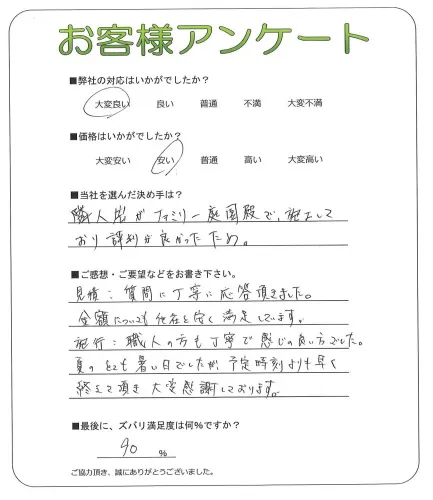 お客様アンケート
■弊社の対応はいかがでしたか?
大変良い 良い 普通 不満 大変不満
■価格はいかがでしたか?
大変安い 安い 普通 高い 大変高い
■当社を選んだ決め手は?
職人出がファミリー庭園殿で、施工して
おり評判が良かったため。
■ご感想・ご要望などをお書き下さい。
見積:質問に丁寧に応答頂きました。
金額についても他社より安く満足しています。
施行:職人の方も丁寧で感じの良い方でした。
夏のとても暑い日でしたが、予定時刻よりも早く
終えて頂き大変感謝しております。
■最後に、ズバリ満足度は何%ですか?
90 %
ご協力頂き、誠にありがとうございました。